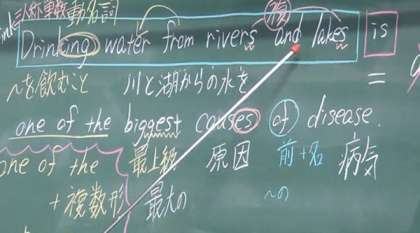 動名詞 複
Drinking water from rivers and lakes is
〜を飲むこと 川と湖からの水を =
one of the biggest causes of disease.
one of the 最上級 原因 前+名 病気
+ 複数形 最大の 〜の